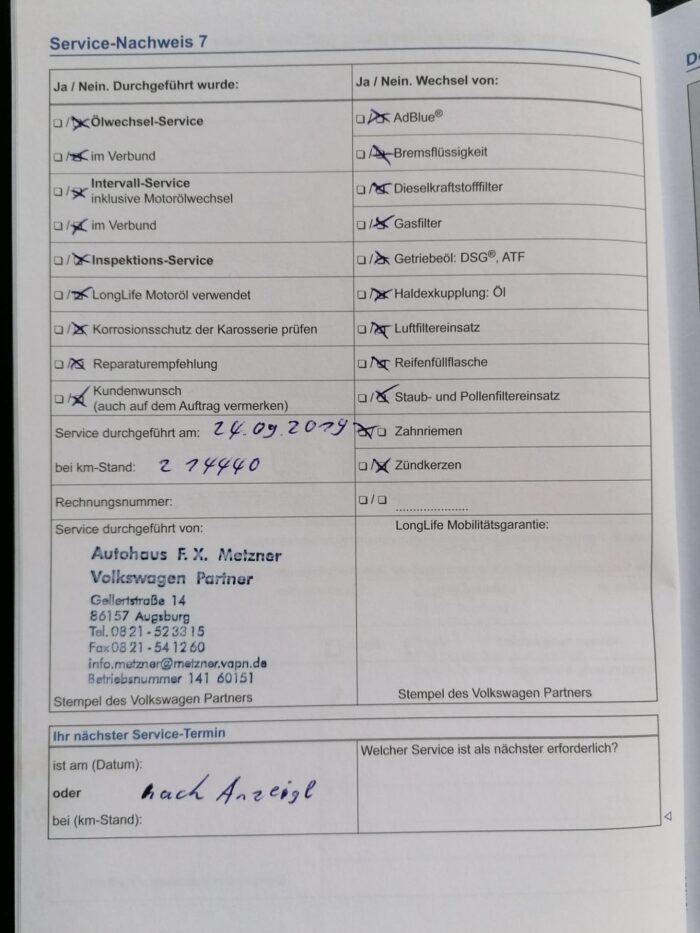 Service-Nachweis 7
Ja / Nein. Durchgeführt wurde:
❏/❏ Ölwechsel-Service
❏/❏ im Verbund
❏/❏ Intervall-Service
inklusive Motorölwechsel
❏/❏ im Verbund
❏/❏ Inspektions-Service
❏/❏ LongLife Motoröl verwendet
❏/❏ Korrosionsschutz der Karosserie prüfen
❏/❏ Reparaturempfehlung
❏/❏ Kundenwunsch
(auch auf dem Auftrag vermerken)
Service durchgeführt am: 24.09.2019
bei km-Stand: 214440
Rechnungsnummer:
Service durchgeführt von:
Autohaus F. X. Metzner
Volkswagen Partner
Gellertstraße 14
86157 Augsburg
Tel. 08 21 - 52 33 15
Fax 08 21 - 54 12 60
info.metzner@metzner.vapn.de
Betriebsnummer 141 60151
Stempel des Volkswagen Partners
Ja / Nein. Wechsel von:
❏/❏ AdBlue®
❏/❏ Bremsflüssigkeit
❏/❏ Dieselkraftstofffilter
❏/❏ Gasfilter
❏/❏ Getriebeöl: DSG®, ATF
❏/❏ Haldexkupplung: Öl
❏/❏ Luftfiltereinsatz
❏/❏ Reifenfüllflasche
❏/❏ Staub- und Pollenfiltereinsatz
❏/❏ Zahnriemen
❏/❏ Zündkerzen
❏/❏ ......................
LongLife Mobilitätsgarantie:
Stempel des Volkswagen Partners
Ihr nächster Service-Termin
ist am (Datum):
oder nach Anzeige
bei (km-Stand):
Welcher Service ist als nächster erforderlich?